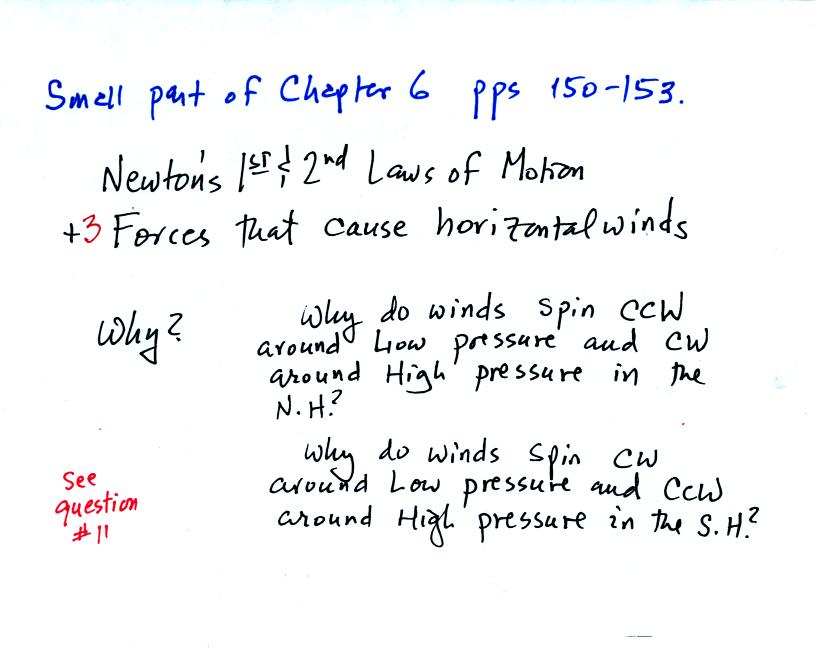 Small part of Chapter 6 pps 150-153.
Newton's 1st & 2nd Laws of Motion
+3 Forces that cause horizontal winds
Why?
Why do winds spin CCW
around Low pressure and CW
around High pressure in the
N.H?
Why do winds spin CW
around Low pressure and CCW
around High pressure in the S.H?
See
question
#11